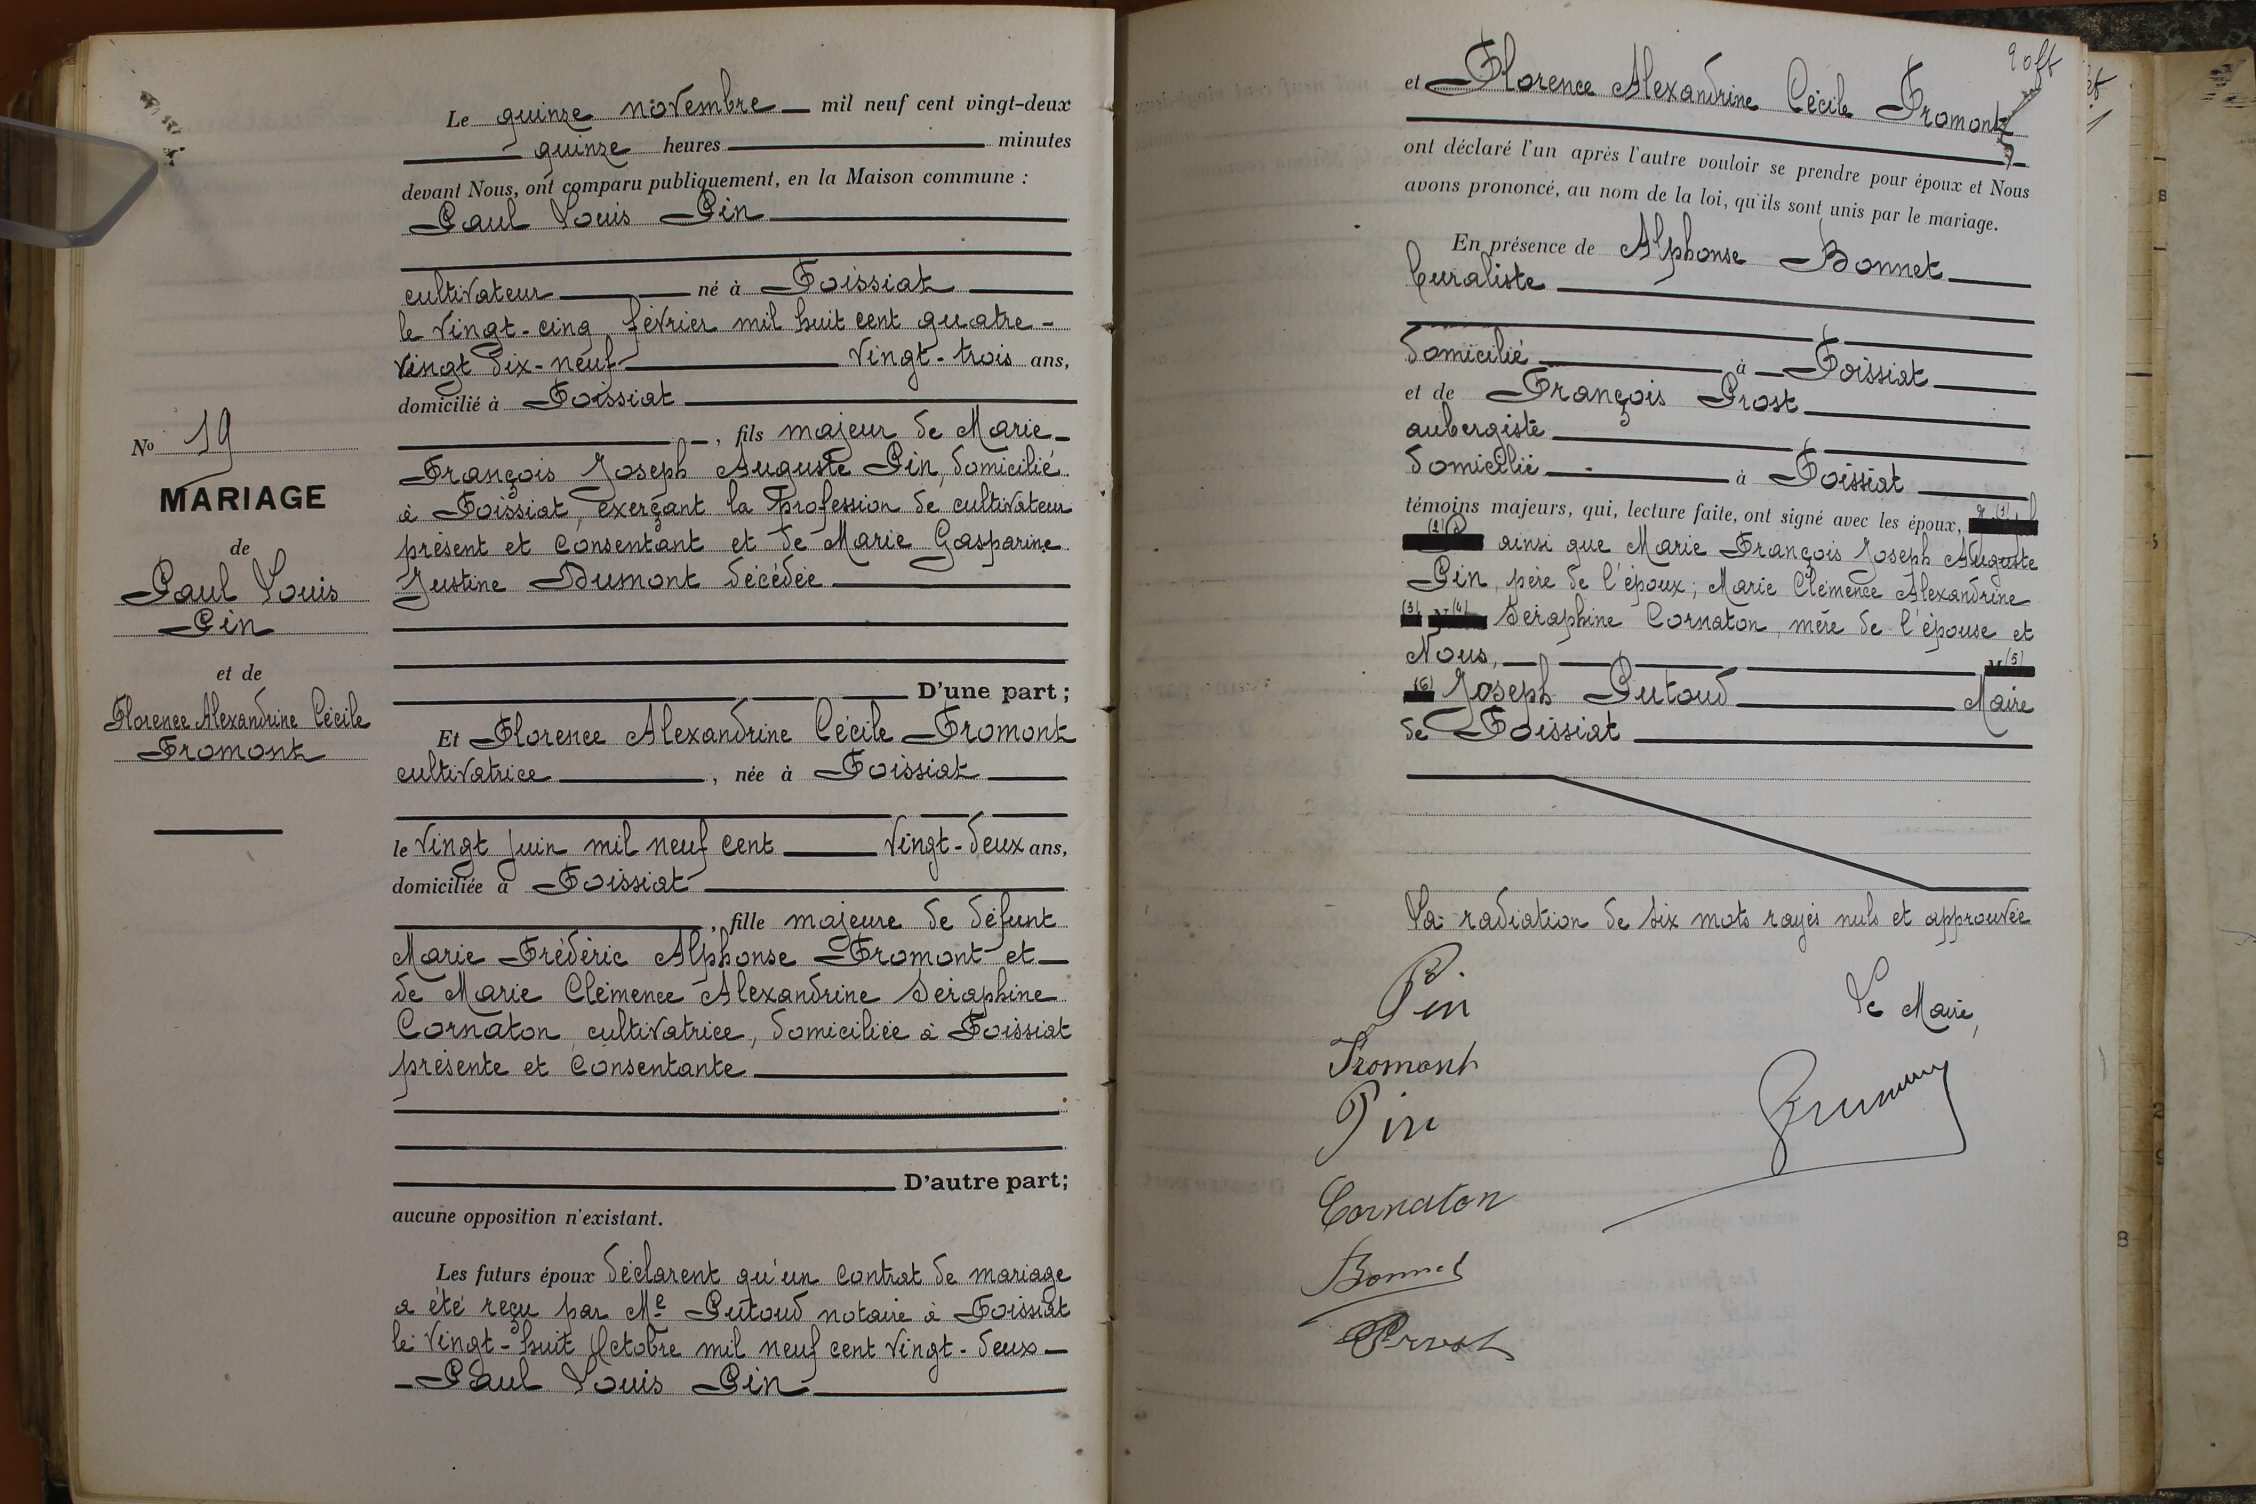 No 19
MARIAGE
de
Paul Louis
Pin
et de
Florence Alexandrine Cécile
Fromont
Le quinze novembre mil neuf cent vingt-deux
quinze heures minutes
devant Nous, ont comparu publiquement, en la Maison commune :
Paul Louis Pin
cultivateur né à Foissiat
le vingt-cinq février mil huit cent quatre-
vingt dix-neuf vingt-trois ans,
domicilié à Foissiat
, fils majeur de Marie
François Joseph Auguste Pin, domicilié
à Foissiat, exerçant la profession de cultivateur
présent et consentant et de Marie Gasparine
Justine Dumont décédée
D'une part ;
Et Florence Alexandrine Cécile Fromont
cultivatrice , née à Foissiat
le vingt juin mil neuf cent vingt-deux ans,
domiciliée à Foissiat
, fille majeure de défunt
Marie Frédéric Alphonse Fromont et
de Marie Clémence Alexandrine Séraphine
Cornaton, cultivatrice, domiciliée à Foissiat
présente et consentante
D'autre part ;
aucune opposition n'existant.
Les futurs époux déclarent qu'un contrat de mariage
a été reçu par Me Putoud notaire à Foissiat
le vingt-huit Octobre mil neuf cent vingt-deux
Paul Louis Pin
et Florence Alexandrine Cécile Fromont
ont déclaré l'un après l'autre vouloir se prendre pour époux et Nous
avons prononcé, au nom de la loi, qu'ils sont unis par le mariage.
En présence de Alphonse Bonnet
buraliste
domicilié à Foissiat
et de François Prost
aubergiste
domicilié à Foissiat
témoins majeurs, qui, lecture faite, ont signé avec les époux, (1)
(2) ainsi que Marie François Joseph Auguste
Pin, père de l'époux ; Marie Clémence Alexandrine
(3) (4) Séraphine Cornaton, mère de l'épouse et
Nous, (5)
(6) Joseph Putoud Maire
de Foissiat
La radiation de six mots rayés nuls et approuvée
Pin
Le Maire,
Fromont
Pin
Cornaton
Bonnet
Prost